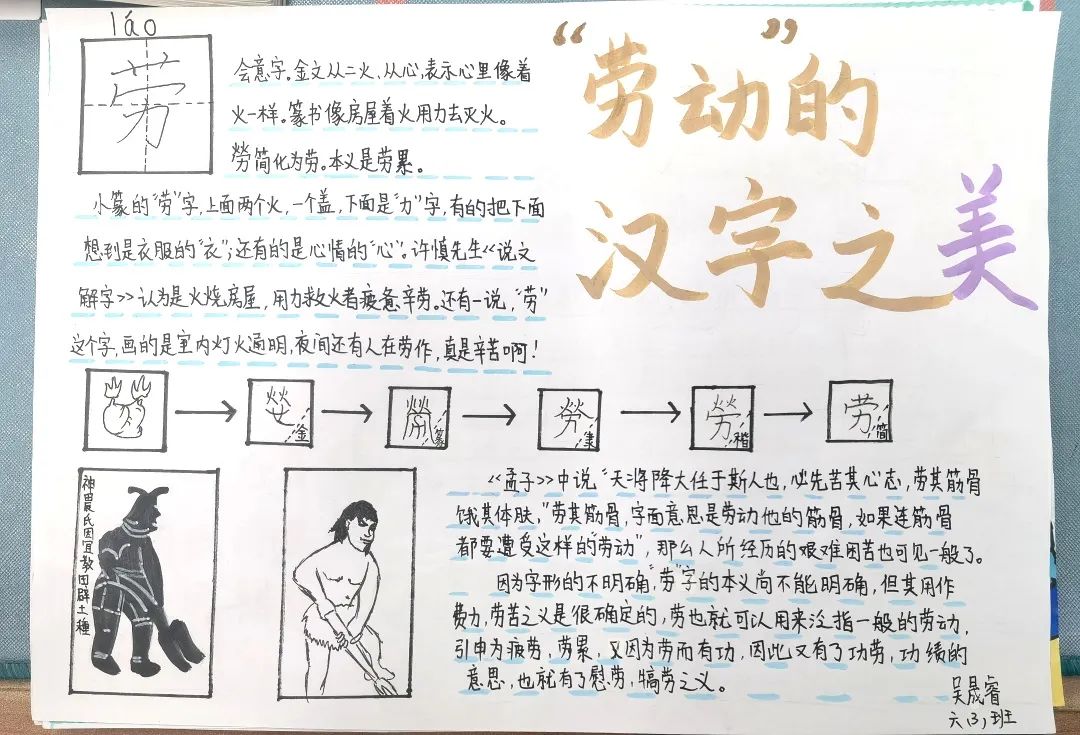 láo
劳
会意字。金文从二火，从心，表示心里像着
火一样。篆书像房屋着火用力去灭火。
勞简化为劳。本义是劳累。
小篆的"劳"字，上面两个火，一个盖，下面是"力"字，有的把下面
想到是衣服的"衣"；还有的是心情的"心"。许慎先生《说文
解字》认为是火烧房屋，用力救火者疲惫辛劳。还有一说，"劳"
这个字，画的是室内灯火通明，夜间还有人在劳作，真是辛苦啊！
"劳动"的
汉字之美
金
篆
勞
隶
勞
楷
劳
简
神農氏因宜教田辟土種
《孟子》中说"天将降大任于斯人也，必先苦其心志，劳其筋骨
饿其体肤，"劳其筋骨，字面意思是劳动他的筋骨，如果连筋骨
都要遭受这样的"劳动"，那么人所经历的艰难困苦也可见一般了。
因为字形的不明确，"劳"字的本义尚不能明确，但其用作
费力，劳苦之义是很确定的，劳也就可以用来泛指一般的劳动，
引申为疲劳，劳累，又因为劳而有功，因此又有了功劳，功绩的
意思，也就有了慰劳，犒劳之义。
吴晟睿
六(3)班